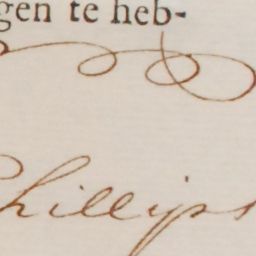 gen te heb-
Phillips